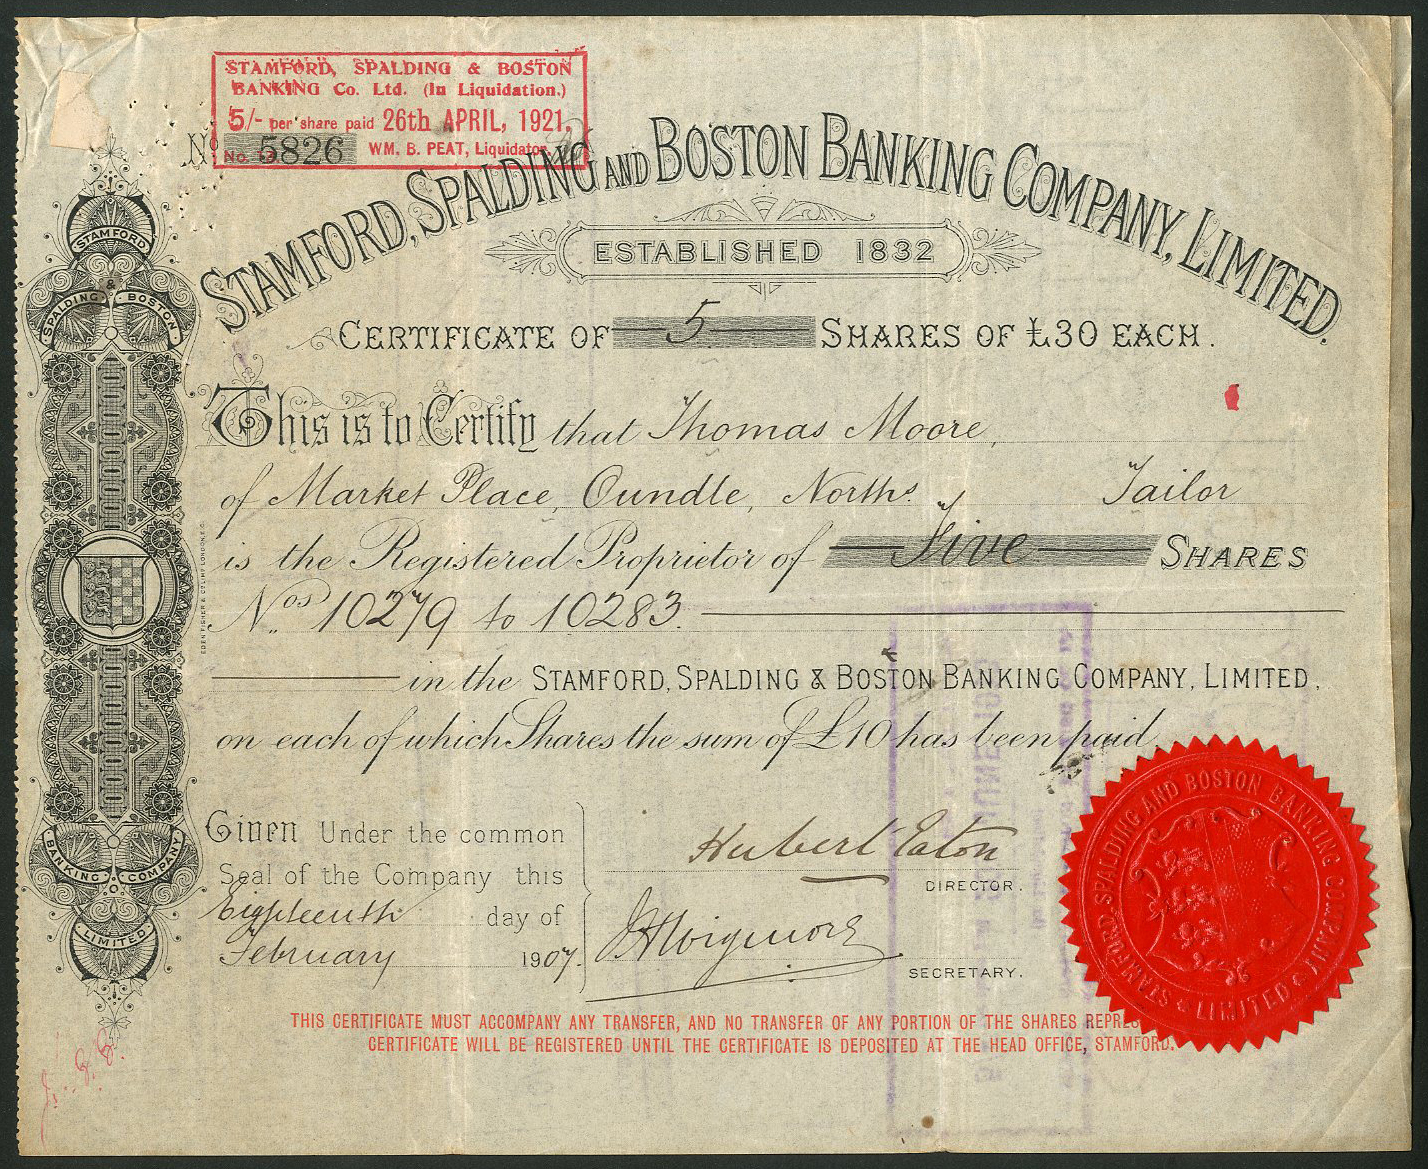 STAMFORD, SPALDING & BOSTON
BANKING Co. Ltd. (In Liquidation.)
5/- per share paid 26th APRIL, 1921,
No. WM. B. PEAT, Liquidator.
No. 5826
STAMFORD, SPALDING AND BOSTON BANKING COMPANY, LIMITED.
ESTABLISHED 1832
CERTIFICATE OF 5 SHARES OF £30 EACH.
This is to Certify that Thomas Moore,
of Market Place, Oundle, Norths. Tailor
is the Registered Proprietor of Five SHARES
Nos. 10279 to 10283.
in the STAMFORD, SPALDING & BOSTON BANKING COMPANY, LIMITED,
on each of which Shares the sum of £10 has been paid
Given Under the common
Seal of the Company this
Eighteenth day of
February 1907.
Hubert Eaton
DIRECTOR.
SECRETARY.
THIS CERTIFICATE MUST ACCOMPANY ANY TRANSFER, AND NO TRANSFER OF ANY PORTION OF THE SHARES
CERTIFICATE WILL BE REGISTERED UNTIL THE CERTIFICATE IS DEPOSITED AT THE HEAD OFFICE, STAMFORD.
STAMFORD, SPALDING AND BOSTON BANKING COMPANY
LIMITED
STAMFORD
&
SPALDING BOSTON
BANKING COMPANY
LIMITED
EDEN FISHER & CO. LTD LONDON, E.C.